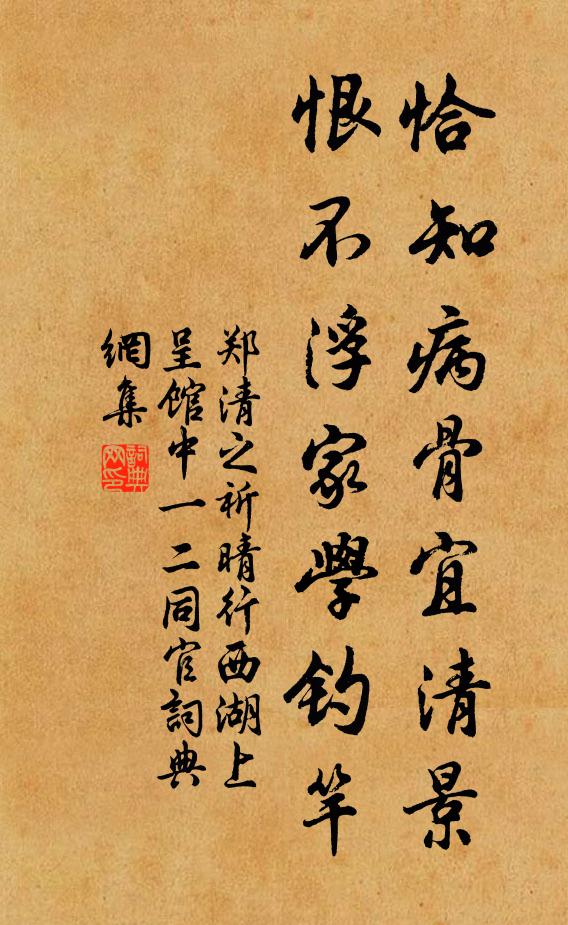 恰知病骨宜清景
恨不浮家學钓竿
郑清之祈晴行西湖上
呈馆中一二同官詞典
網集
詞典網印